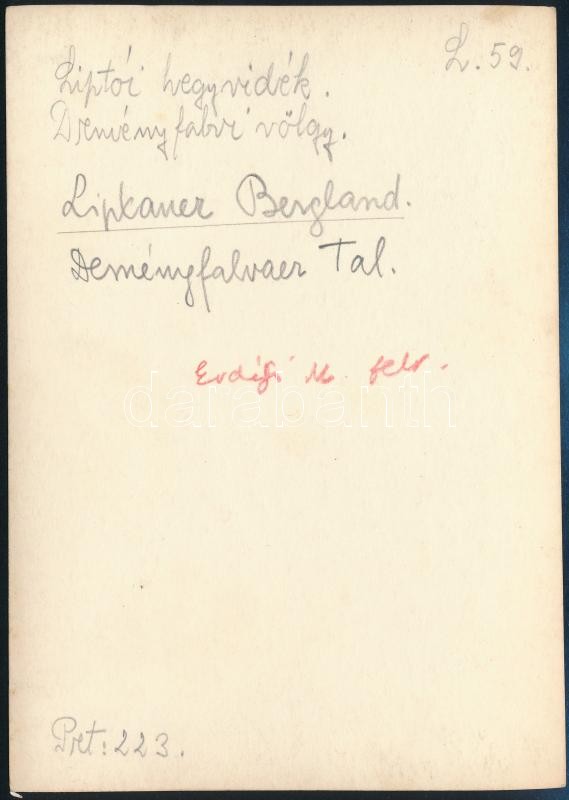 L. 59.
Liptói hegyvidék.
Deményfalvi völgy.
Liptauer Bergland.
Deményfalvaer Tal.
Erdélyi M. felv.
darabanth
Prt: 223.